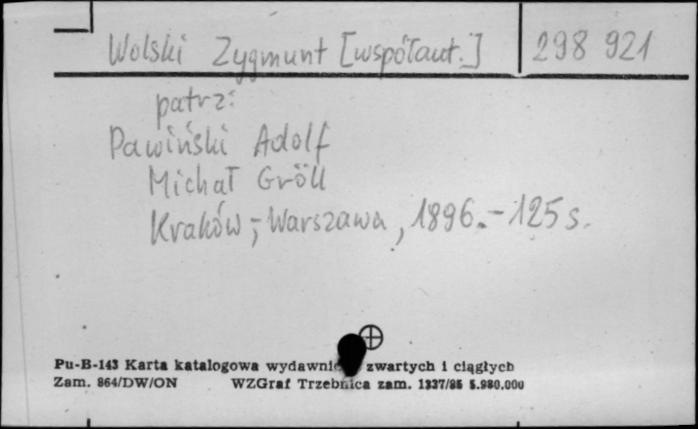 Wolski Zygmunt [współaut.] 298 921
patrz:
Pawiński Adolf
Michał Gröll
Kraków; Warszawa, 1896.-125 s.
Pu-B-143 Karta katalogowa wydawni zwartych i ciągłych
Zam. 864/DW/ON WZGraf Trzebnica zam. 1337/86 5.980.000